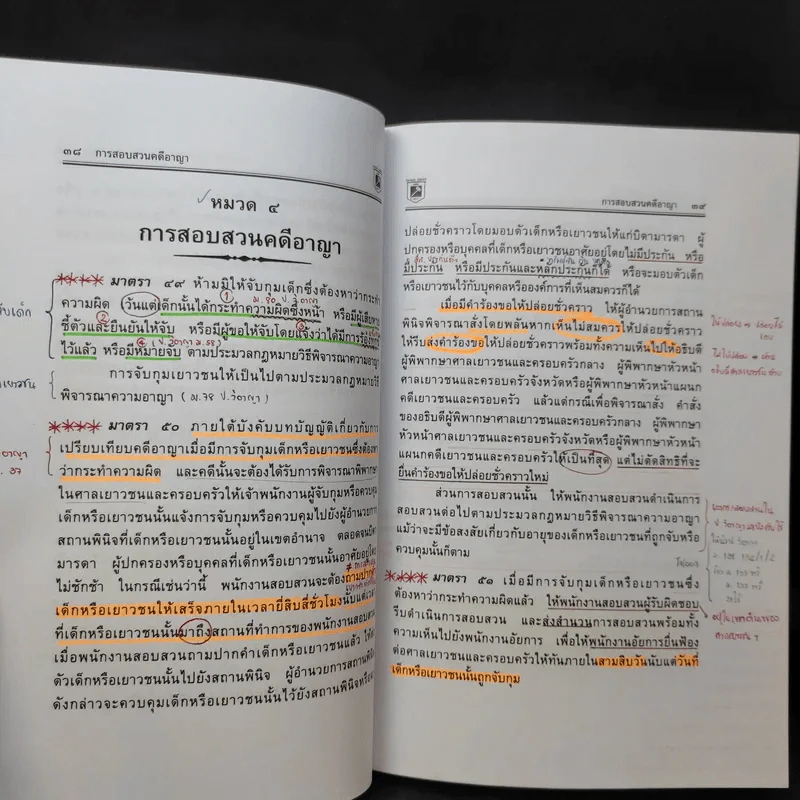 ๓๘ การสอบสวนคดีอาญา
หมวด ๔
การสอบสวนคดีอาญา
**** มาตรา ๔๙ ห้ามมิให้จับกุมเด็กซึ่งต้องหาว่ากระทำ
ความผิด เว้นแต่เด็กนั้นได้กระทำความผิดซึ่งหน้า หรือมีผู้เสียหาย
ชี้ตัวและยืนยันให้จับ หรือมีผู้ขอให้จับโดยแจ้งว่าได้มีการร้องทุกข์
ไว้แล้ว หรือมีหมายจับ ตามประมวลกฎหมายวิธีพิจารณาความอาญา
การจับกุมเยาวชนให้เป็นไปตามประมวลกฎหมายวิธี
พิจารณาความอาญา (ม.78 ป.วิอาญา)
**** มาตรา ๕๐ ภายใต้บังคับบทบัญญัติเกี่ยวกับการ
เปรียบเทียบคดีอาญาเมื่อมีการจับกุมเด็กหรือเยาวชนซึ่งต้องหา
ว่ากระทำความผิด และคดีนั้นจะต้องได้รับการพิจารณาพิพากษา
ในศาลเยาวชนและครอบครัวให้เจ้าพนักงานผู้จับกุมหรือควบคุม
เด็กหรือเยาวชนนั้นแจ้งการจับกุมหรือควบคุมไปยังผู้อำนวยการ
สถานพินิจที่เด็กหรือเยาวชนนั้นอยู่ในเขตอำนาจ ตลอดจนบิดา
มารดา ผู้ปกครองหรือบุคคลที่เด็กหรือเยาวชนนั้นอาศัยอยู่โดย
ไม่ชักช้า ในกรณีเช่นว่านี้ พนักงานสอบสวนจะต้องถามปากคำ
เด็กหรือเยาวชนให้เสร็จภายในเวลายี่สิบสี่ชั่วโมงนับแต่เวลา
ที่เด็กหรือเยาวชนนั้นมาถึงสถานที่ทำการของพนักงานสอบสวน
เมื่อพนักงานสอบสวนถามปากคำเด็กหรือเยาวชนแล้ว ให้ส่ง
ตัวเด็กหรือเยาวชนนั้นไปยังสถานพินิจ ผู้อำนวยการสถานพินิจ
ดังกล่าวจะควบคุมเด็กหรือเยาวชนนั้นไว้ยังสถานพินิจหรือจะ
การสอบสวนคดีอาญา ๓๙
ปล่อยชั่วคราวโดยมอบตัวเด็กหรือเยาวชนให้แก่บิดามารดา ผู้
ปกครองหรือบุคคลที่เด็กหรือเยาวชนอาศัยอยู่โดยไม่มีประกัน หรือ
มีประกัน หรือมีประกันและหลักประกันก็ได้ หรือจะมอบตัวเด็ก
หรือเยาวชนไว้กับบุคคลหรือองค์การที่เห็นสมควรก็ได้
เมื่อมีคำร้องขอให้ปล่อยชั่วคราว ให้ผู้อำนวยการสถาน
พินิจพิจารณาสั่งโดยพลันหากเห็นไม่สมควรให้ปล่อยชั่วคราว
ให้รีบส่งคำร้องขอให้ปล่อยชั่วคราวพร้อมทั้งความเห็นไปให้อธิบดี
ผู้พิพากษาศาลเยาวชนและครอบครัวกลาง ผู้พิพากษาหัวหน้า
ศาลเยาวชนและครอบครัวจังหวัดหรือผู้พิพากษาหัวหน้าแผนก
คดีเยาวชนและครอบครัว แล้วแต่กรณีเพื่อพิจารณาสั่ง คำสั่ง
ของอธิบดีผู้พิพากษาศาลเยาวชนและครอบครัวกลาง ผู้พิพากษา
หัวหน้าศาลเยาวชนและครอบครัวจังหวัดหรือผู้พิพากษาหัวหน้า
แผนกคดีเยาวชนและครอบครัวให้เป็นที่สุด แต่ไม่ตัดสิทธิที่จะ
ยื่นคำร้องขอให้ปล่อยชั่วคราวใหม่
ส่วนการสอบสวนนั้น ให้พนักงานสอบสวนดำเนินการ
สอบสวนต่อไปตามประมวลกฎหมายวิธีพิจารณาความอาญา
แม้ว่าจะมีข้อสงสัยเกี่ยวกับอายุของเด็กหรือเยาวชนที่ถูกจับหรือ
ควบคุมนั้นก็ตาม
**** มาตรา ๕๑ เมื่อมีการจับกุมเด็กหรือเยาวชนซึ่ง
ต้องหาว่ากระทำความผิดแล้ว ให้พนักงานสอบสวนผู้รับผิดชอบ
รีบดำเนินการสอบสวน และส่งสำนวนการสอบสวนพร้อมทั้ง
ความเห็นไปยังพนักงานอัยการ เพื่อให้พนักงานอัยการยื่นฟ้อง
ต่อศาลเยาวชนและครอบครัวให้ทันภายในสามสิบวันนับแต่วันที่
เด็กหรือเยาวชนนั้นถูกจับกุม